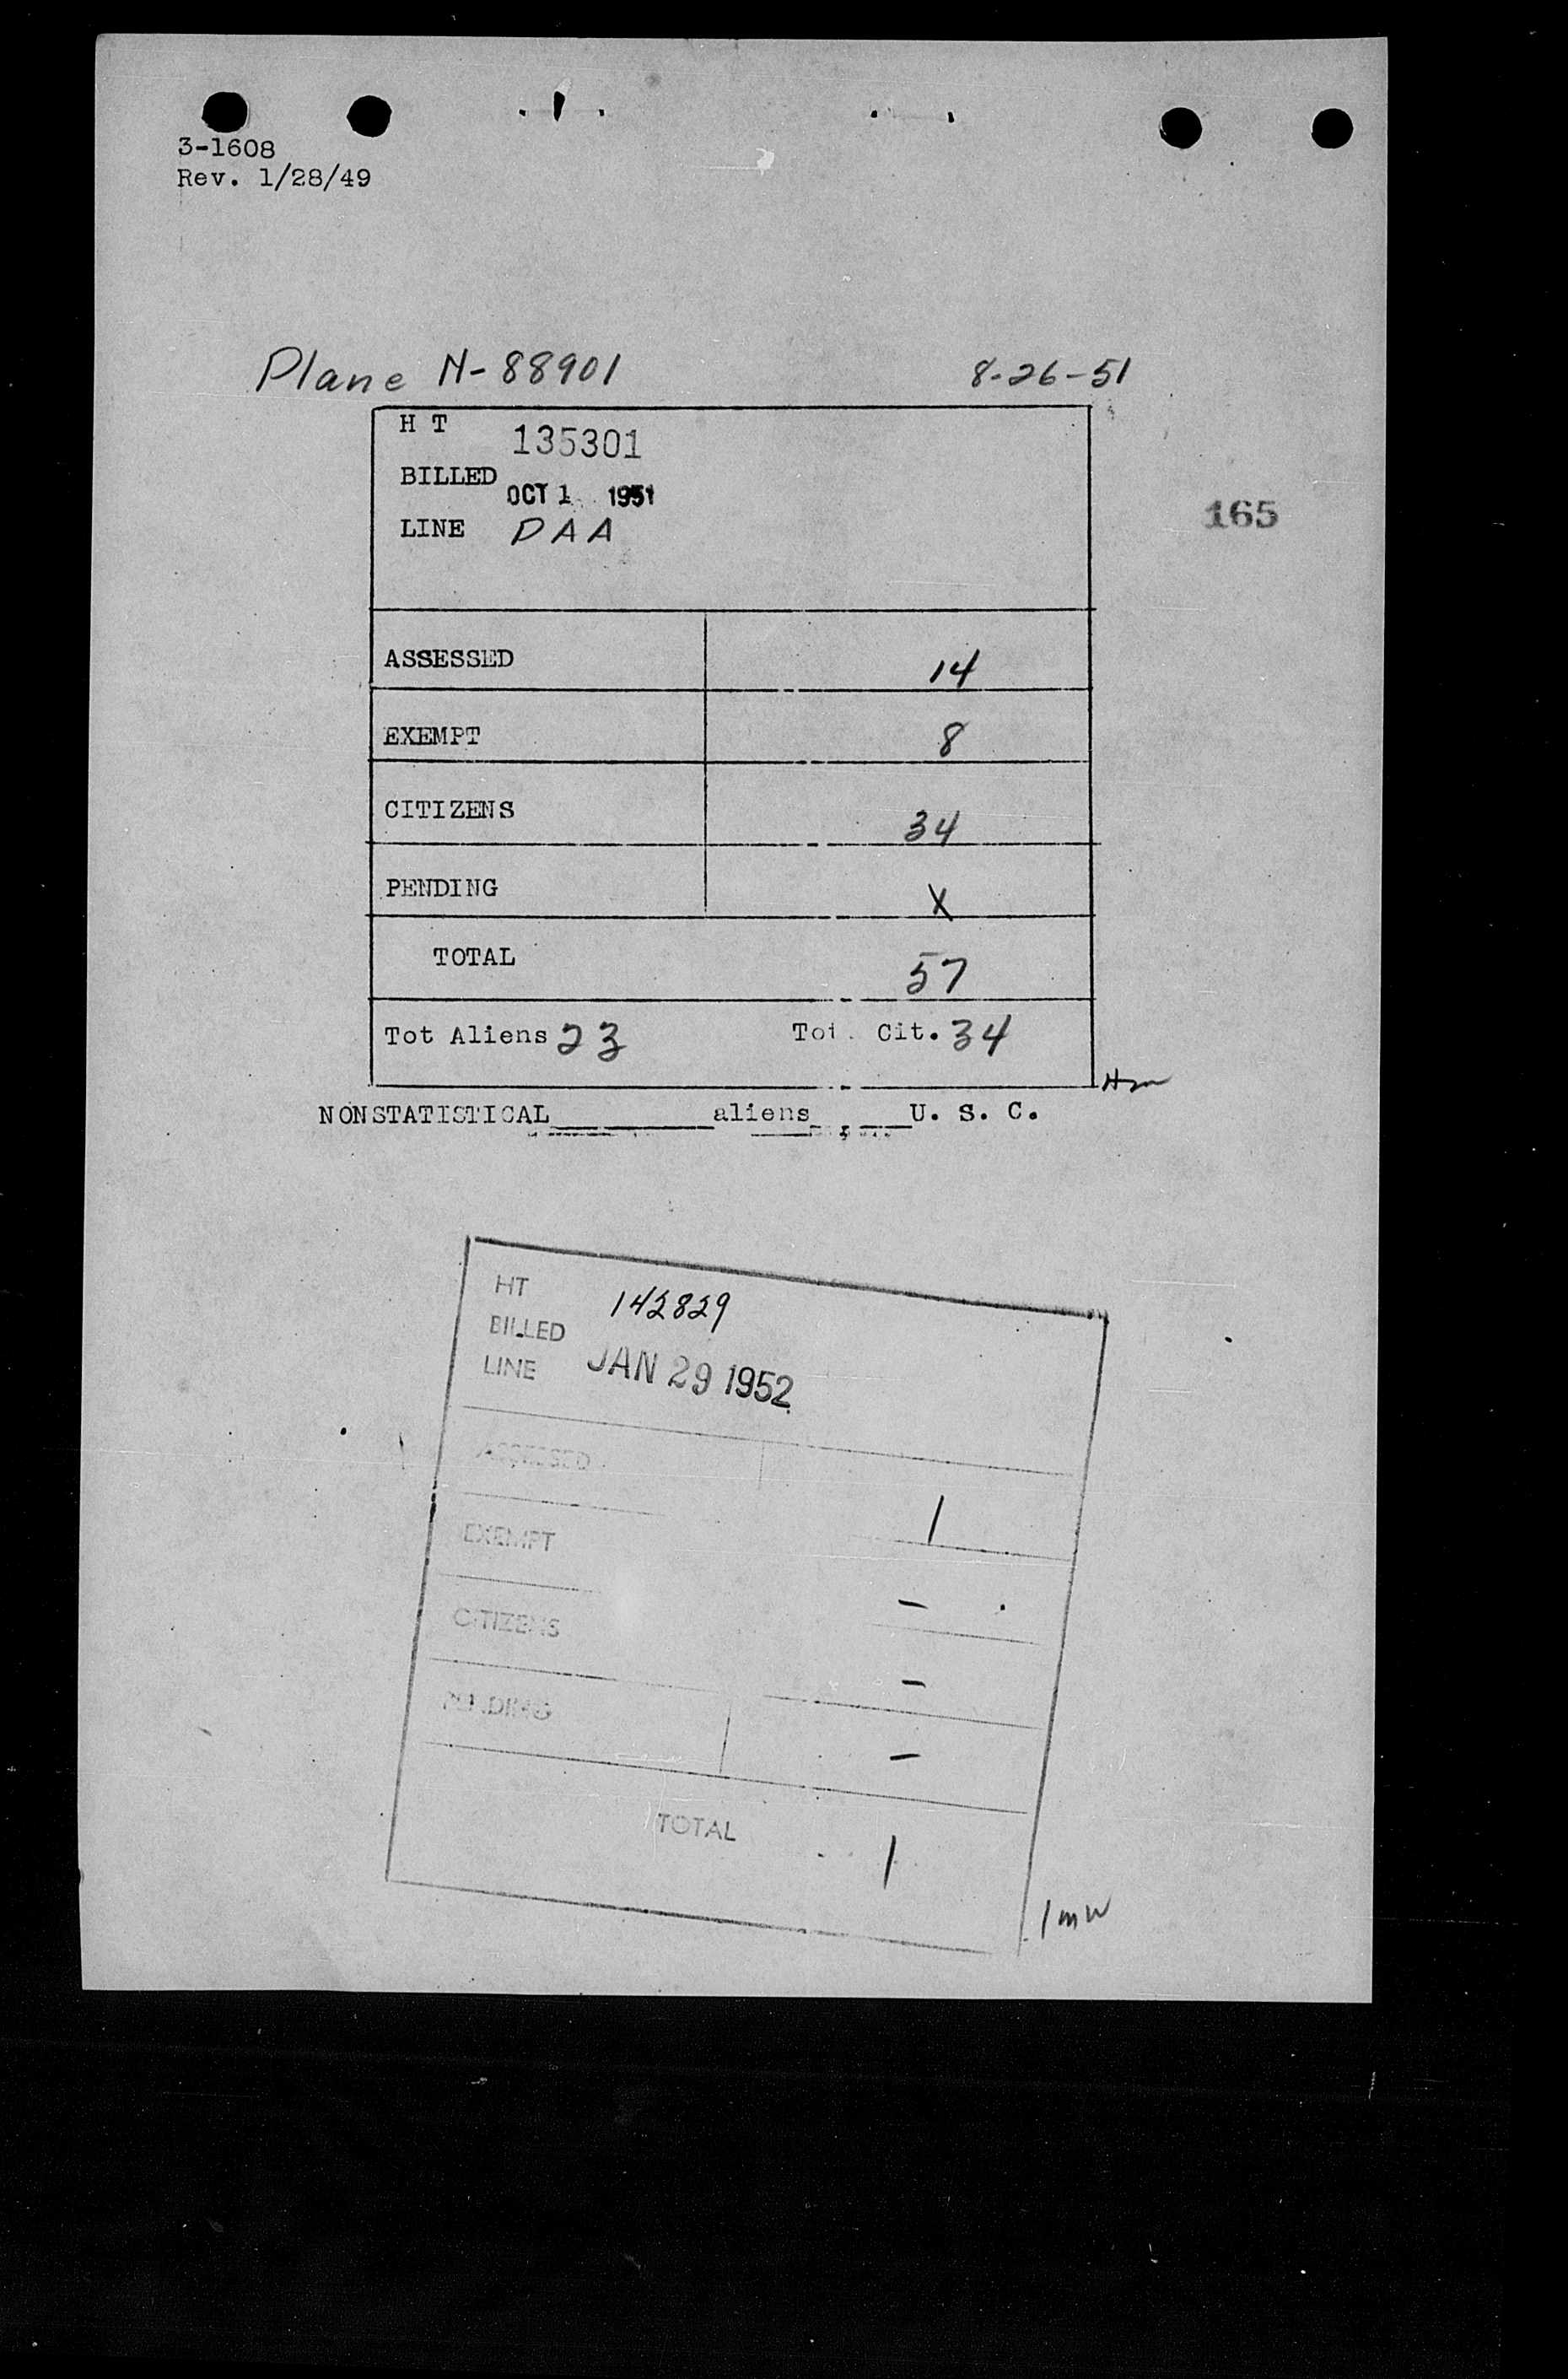 3-1608
Rev. 1/28/49
Plane N-88901 8-26-51
H T 135301
BILLED OCT 1 1951
LINE PAA
165
ASSESSED 14
EXEMPT 8
CITIZENS 34
PENDING X
TOTAL 57
Tot Aliens 23 Tot. Cit. 34
NONSTATISTICAL aliens, U. S. C.
HT 142829
BILLED
LINE JAN 29 1952
ASSESSED 1
EXEMPT -
CITIZENS -
PENDING -
TOTAL 1